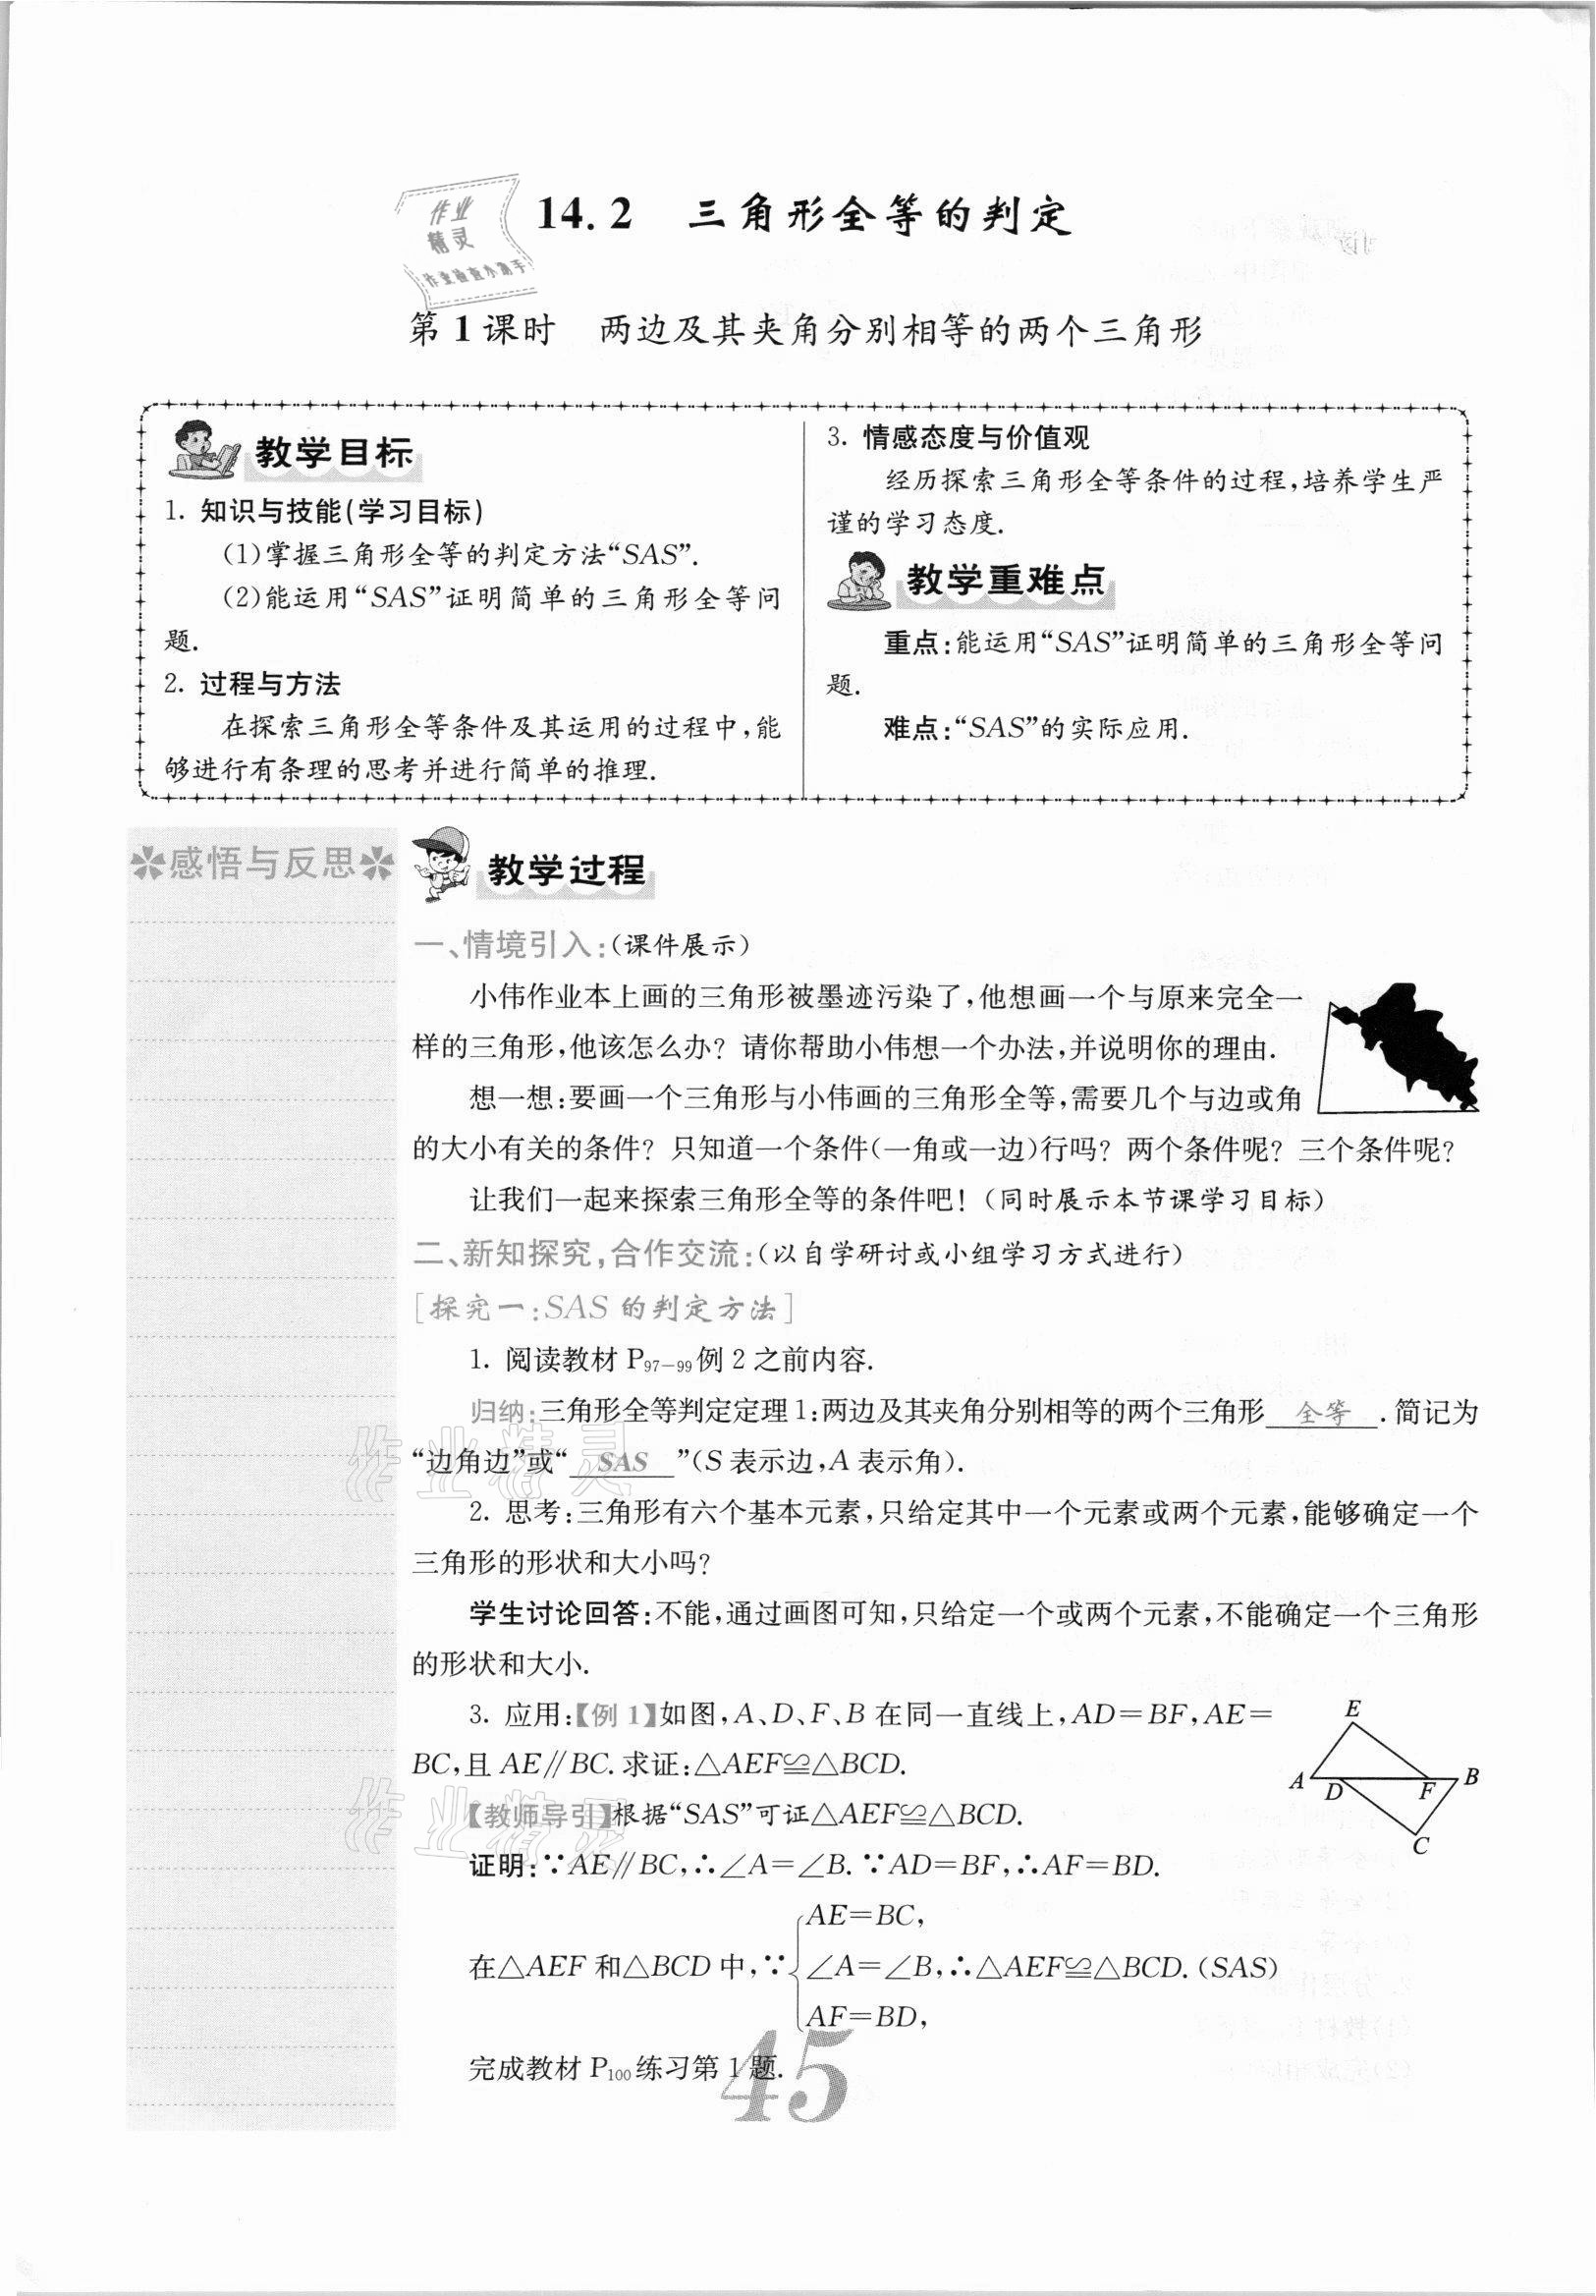 作业
精灵
作业检查小助手
14.2 三角形全等的判定
第1课时 两边及其夹角分别相等的两个三角形
教学目标
1. 知识与技能(学习目标)
(1)掌握三角形全等的判定方法“SAS”.
(2)能运用“SAS”证明简单的三角形全等问
题.
2. 过程与方法
在探索三角形全等条件及其运用的过程中,能
够进行有条理的思考并进行简单的推理.
3. 情感态度与价值观
经历探索三角形全等条件的过程,培养学生严
谨的学习态度.
教学重难点
重点:能运用“SAS”证明简单的三角形全等问
题.
难点:“SAS”的实际应用.
感悟与反思
教学过程
一、情境引入:(课件展示)
小伟作业本上画的三角形被墨迹污染了,他想画一个与原来完全一
样的三角形,他该怎么办? 请你帮助小伟想一个办法,并说明你的理由.
想一想:要画一个三角形与小伟画的三角形全等,需要几个与边或角
的大小有关的条件? 只知道一个条件(一角或一边)行吗? 两个条件呢? 三个条件呢?
让我们一起来探索三角形全等的条件吧! (同时展示本节课学习目标)
二、新知探究,合作交流:(以自学研讨或小组学习方式进行)
[探究一:SAS 的判定方法]
1. 阅读教材 P97-99例 2 之前内容.
归纳:三角形全等判定定理 1:两边及其夹角分别相等的两个三角形 全等 .简记为
“边角边”或“ SAS ”(S 表示边,A 表示角).
2. 思考:三角形有六个基本元素,只给定其中一个元素或两个元素,能够确定一个
三角形的形状和大小吗?
学生讨论回答:不能,通过画图可知,只给定一个或两个元素,不能确定一个三角形
的形状和大小.
3. 应用:【例 1】如图,A、D、F、B 在同一直线上,AD=BF,AE=
BC,且 AE∥BC.求证:△AEF≌△BCD.
【教师导引】根据“SAS”可证△AEF≌△BCD.
证明:∵AE∥BC,∴∠A=∠B.∵AD=BF,∴AF=BD.
AE=BC,
在△AEF 和△BCD 中,∵ ∠A=∠B,∴△AEF≌△BCD.(SAS)
AF=BD,
完成教材 P100练习第 1 题.
E
A D F B
C
作业精灵
作业精灵
45